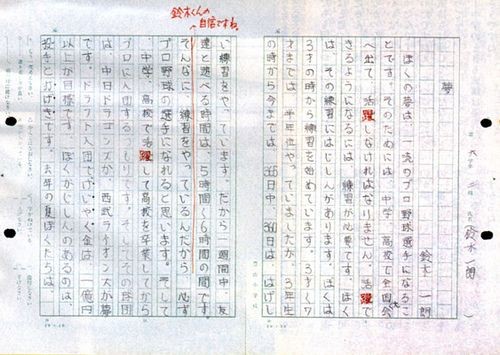 夢
鈴木一朗
ぼくの夢は、一流のプロ野球選手になるこ
とです。そのためには、中学、高校で全国大会
へ出て、活躍しなければなりません。活躍で
きるようになるには、練習が必要です。ぼく
は、その練習にはじしんがあります。ぼくは
3才の時から練習を始めています。3才〜7
才までは、半年位やっていましたが、3年生
の時から今までは、365日中、360日は、はげし
鈴木くんの
自信ですね。
い練習をやっています。だから一週間中、友
達と遊べる時間は、5時間〜6時間の間です。
そんなに、練習をやっているんだから、必ず
プロ野球の選手になれると思います。そして、
中学、高校で活躍して高校を卒業してから
プロに入団するつもりです。そしてその球団
は、中日ドラゴンズか、西武ライオンズが夢
です。ドラフト入団でけいやく金は、一億円
以上が目標です。ぼくがじしんのあるのは、
投手と打げきです。去年の夏ぼくたちは、
鈴木一朗